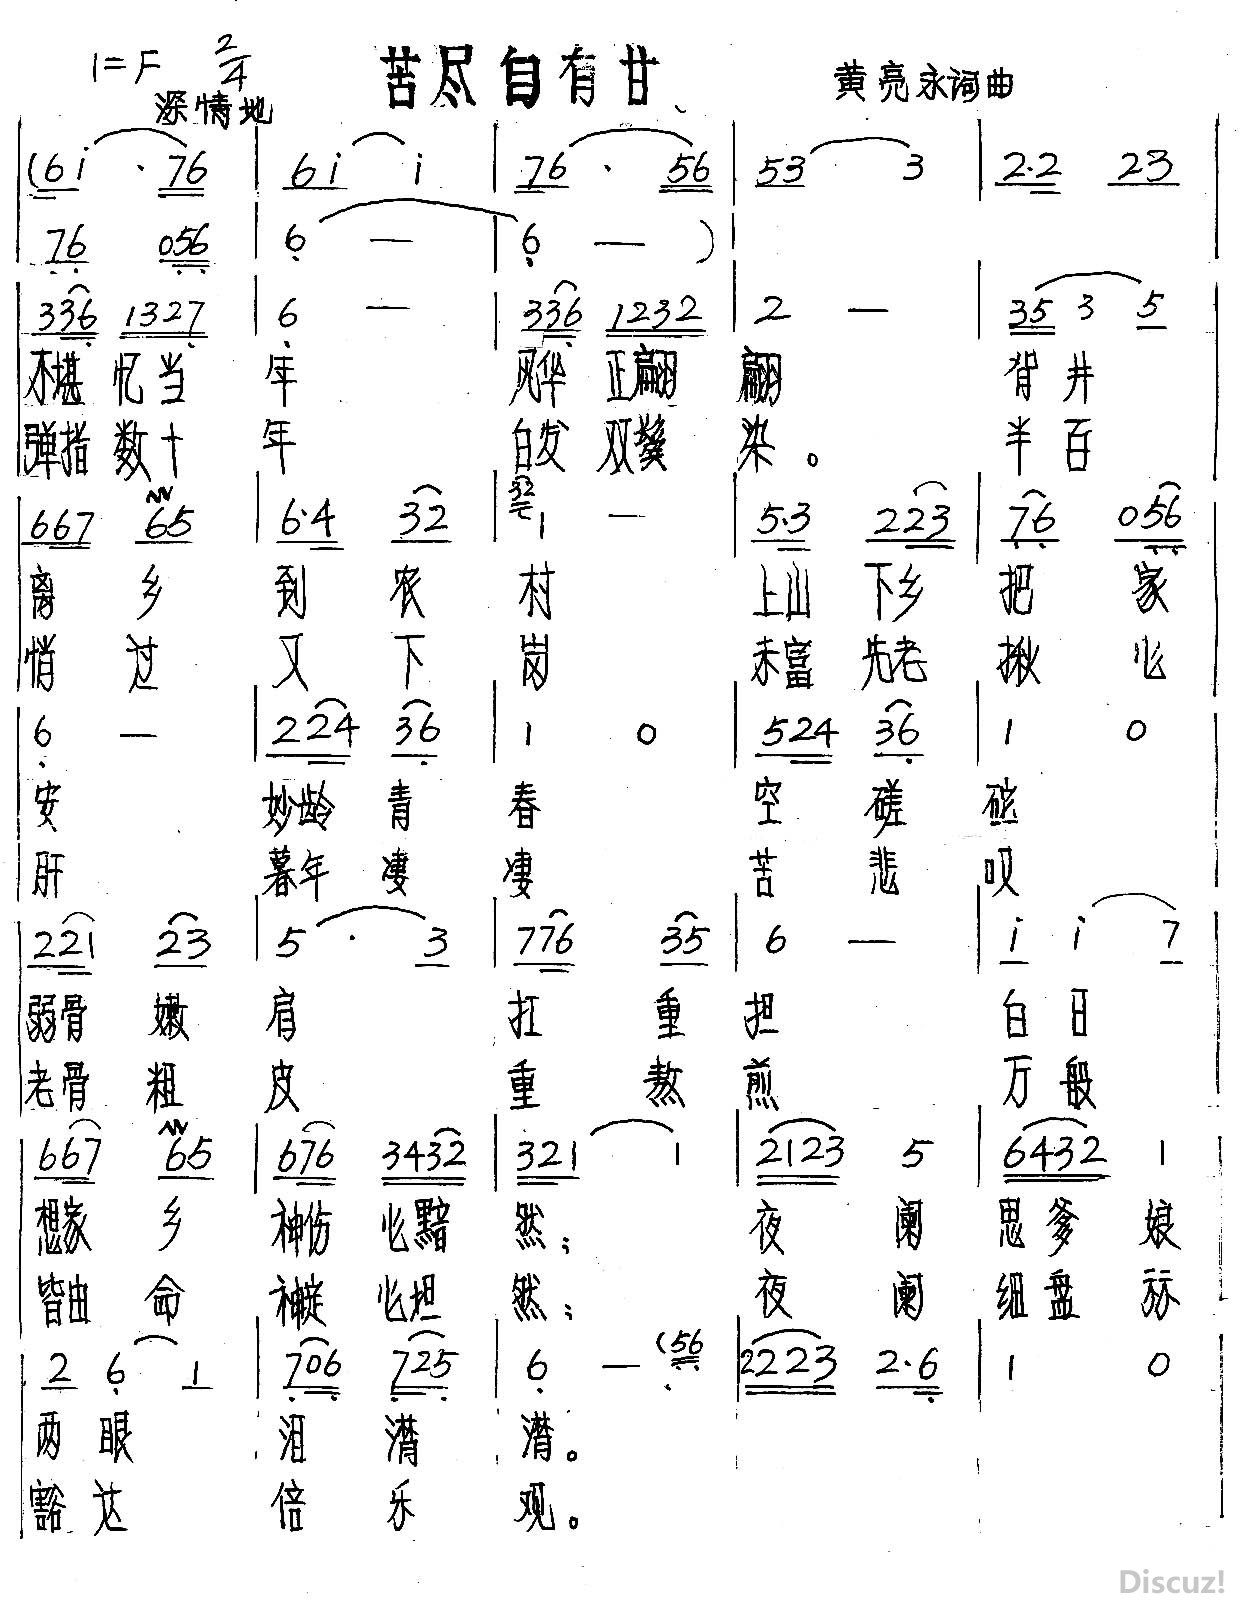 1=F 2/4 苦尽自有甘 黄亮永词曲
深情地
(6i · 76 | 6i i | 76 · 56 | 53 3 | 2·2 23 |
76 056 | 6 — | 6 — ) |
336 1327 | 6 — | 336 1232 | 2 — | 35 3 5 |
不堪忆当年 风华正翩翩 背井
弹指数十年 白发双鬓染。 半百
667 65 | 6·4 32 | 32 1 — | 5·3 223 | 76 056 |
离乡到农村 上山下乡把家
悄过又下岗 未富先老揪心
6 — | 224 36 | 1 0 | 524 36 | 1 0 |
安 妙龄青春 空磋砣
肝 暮年凄凄 苦悲叹
221 23 | 5 · 3 | 776 35 | 6 — | i i 7 |
弱骨嫩肩 扛重担 白日
老骨粗皮 重熬煎 万般
667 65 | 676 3432 | 321 1 | 2123 5 | 6432 1 |
想家乡 神伤心黯然; 夜阑思爹娘
皆由命 神定心坦然; 夜阑细盘算
2 6 1 | 706 725 | 6 — (56 | 2223 2·6 | 1 0 |
两眼泪潸潸。
豁达倍乐观。
Discuz!